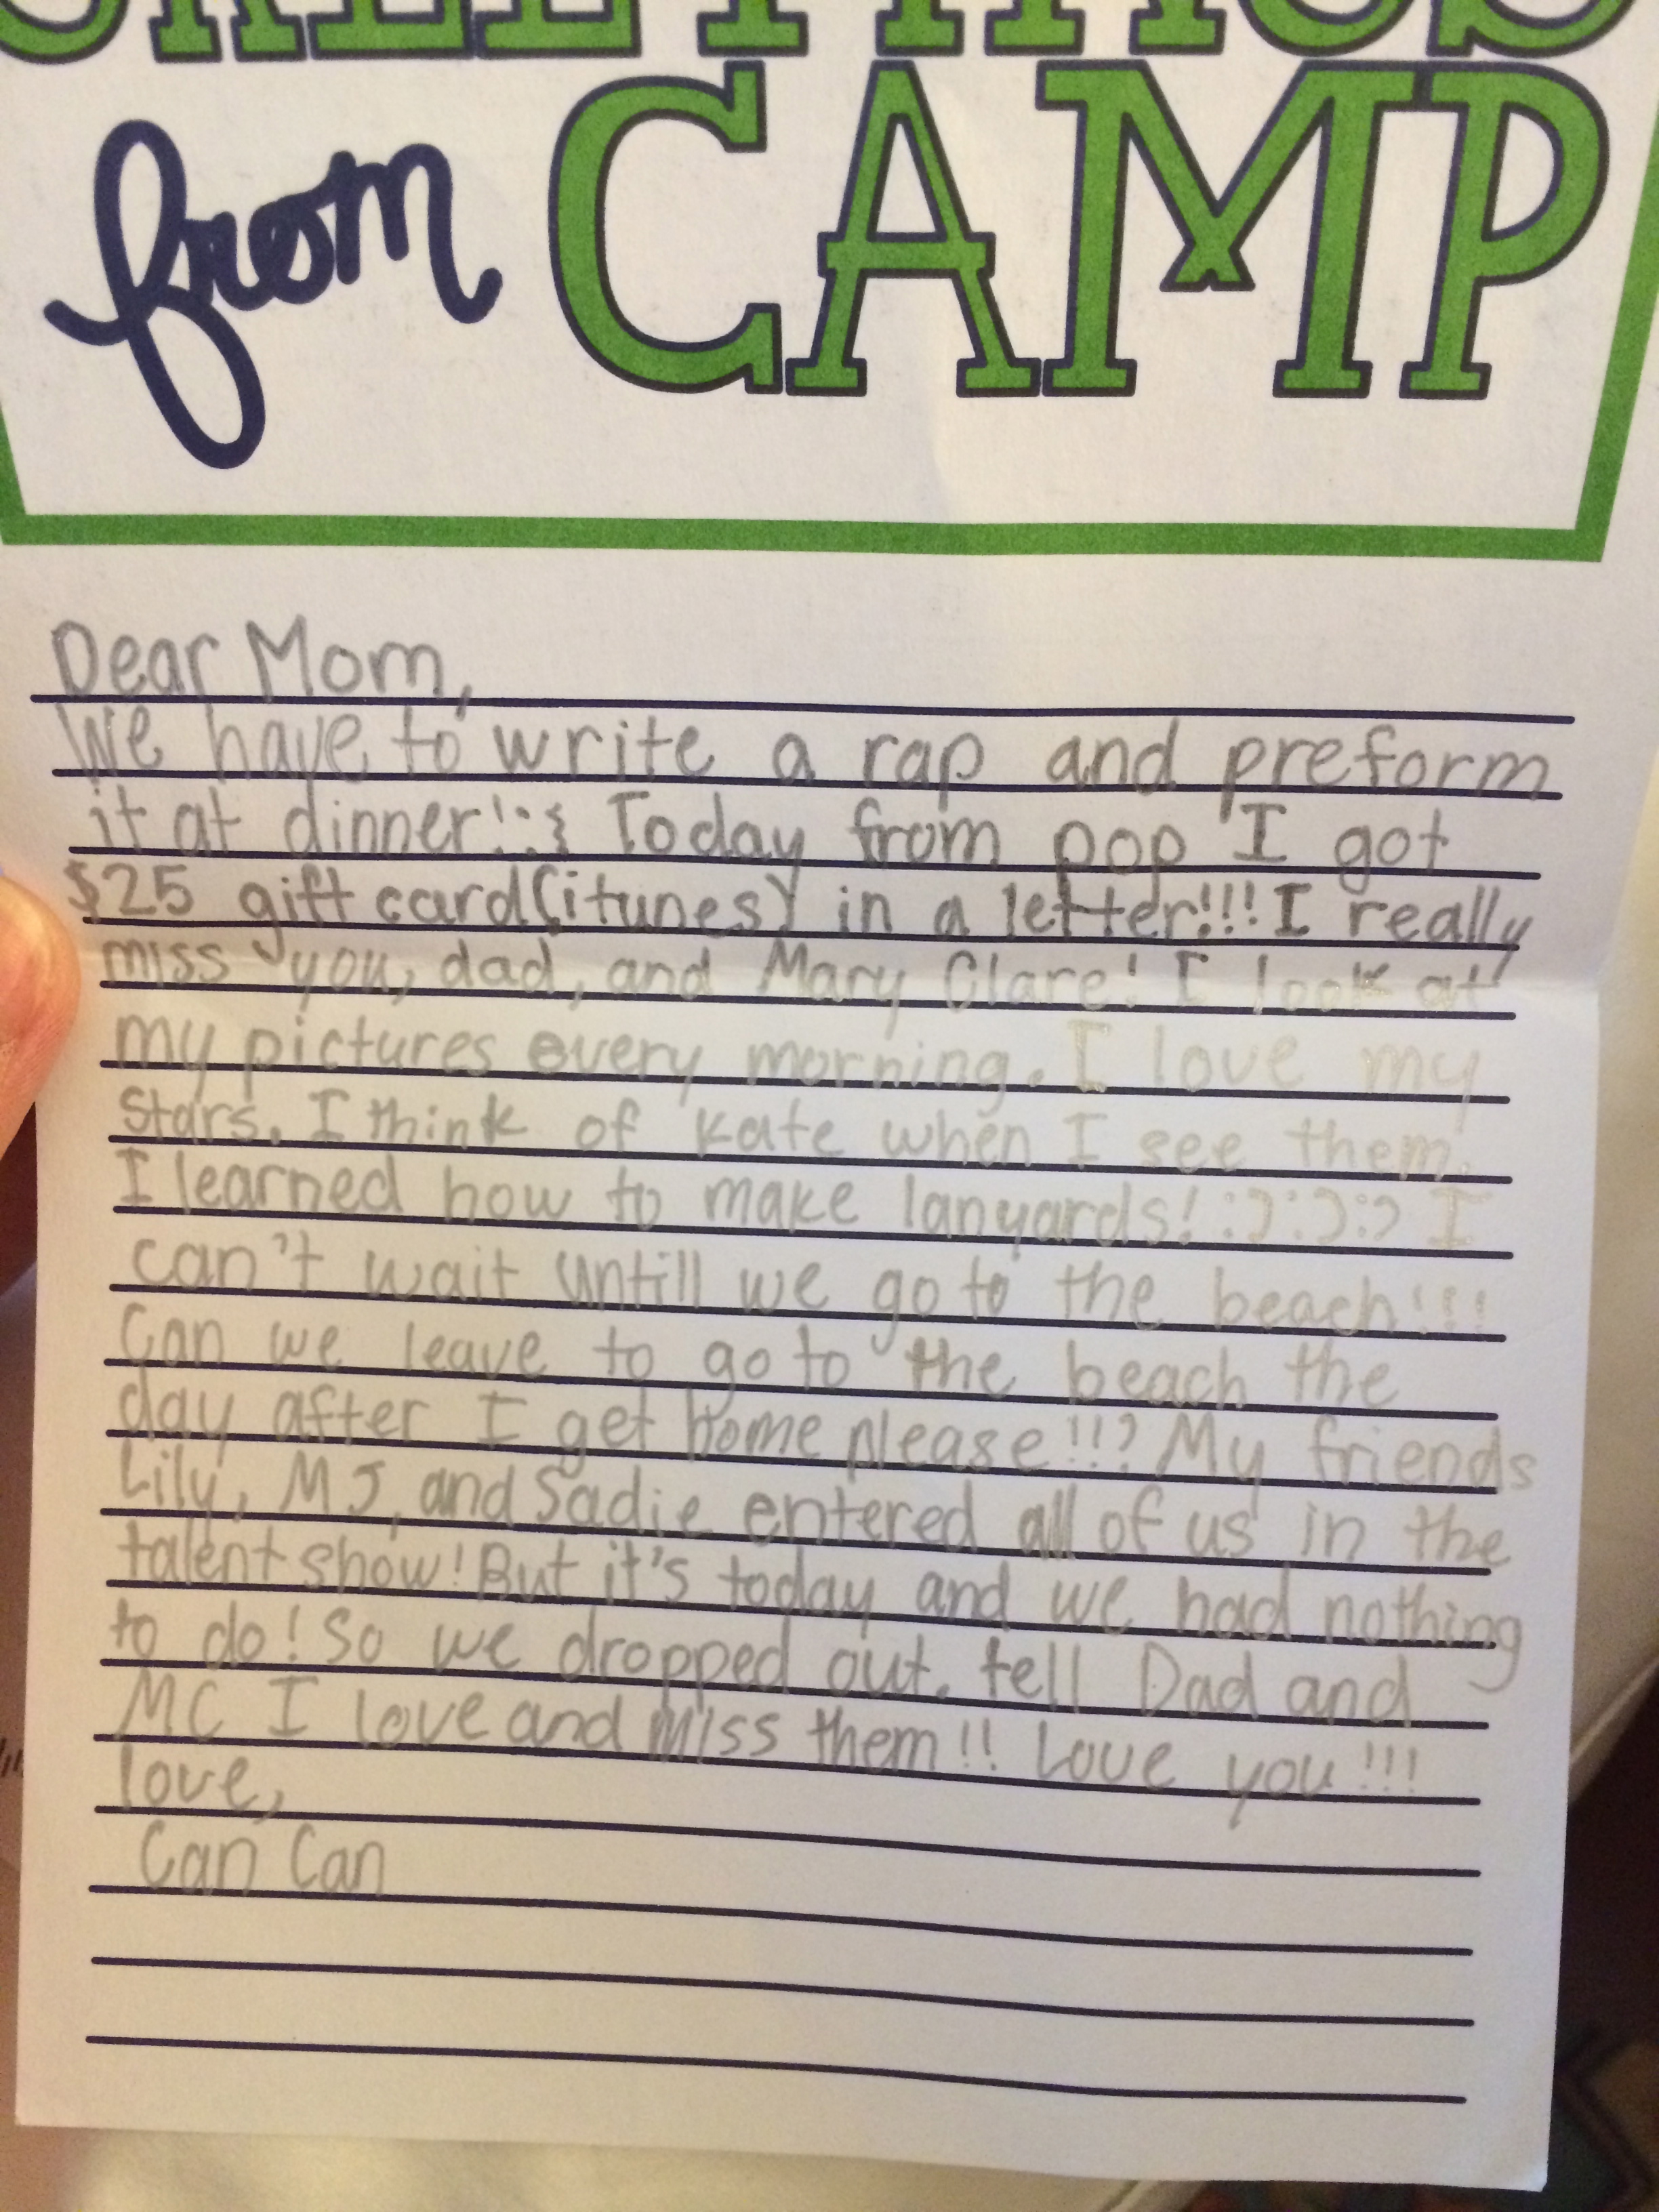 GREETINGS
from CAMP
Dear Mom,
We have to write a rap and preform
it at dinner! :{ Today from pop I got
$25 gift card(itunes) in a letter!!! I really
miss you, dad, and Mary Clare! I look at
my pictures every morning. I love my
stars. I think of Kate when I see them.
I learned how to make lanyards! :) :) :) I
can't wait untill we go to the beach!!!
Can we leave to go to the beach the
day after I get home please!!? My friends
Lily, MJ, and Sadie entered all of us in the
talent show! But it's today and we had nothing
to do! So we dropped out. tell Dad and
MC I love and miss them!! Love you!!!
love,
Can Can